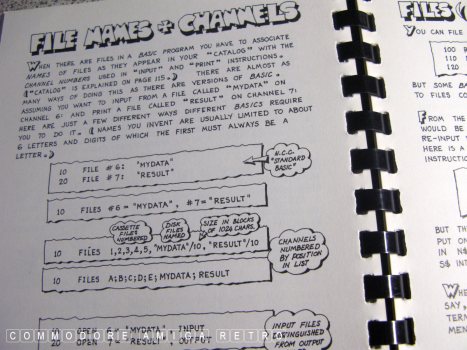 FILE NAMES + CHANNELS
WHEN THERE ARE FILES IN A BASIC PROGRAM YOU HAVE TO ASSOCIATE
NAMES OF FILES AS THEY APPEAR IN YOUR "CATALOG" WITH THE
CHANNEL NUMBERS USED IN "INPUT" AND "PRINT" INSTRUCTIONS.
("CATALOG" IS EXPLAINED ON PAGE 115.) THERE ARE ALMOST AS
MANY WAYS OF DOING THIS AS THERE ARE VERSIONS OF BASIC.
ASSUMING YOU WANT TO INPUT FROM A FILE CALLED "MYDATA" ON
CHANNEL 6: AND PRINT A FILE CALLED "RESULT" ON CHANNEL 7:
HERE ARE JUST A FEW WAYS DIFFERENT BASICS REQUIRE
YOU TO DO IT. (NAMES YOU INVENT ARE USUALLY LIMITED TO ABOUT
6 LETTERS AND DIGITS OF WHICH THE FIRST MUST ALWAYS BE A
LETTER.)
10 FILE #6: "MYDATA"
20 FILE #7: "RESULT"
N.C.C.
"STANDARD
BASIC"
10 FILES #6 = "MYDATA", #7 = "RESULT"
CASSETTE
FILES
NUMBERED
DISK
FILES
NAMED
SIZE IN BLOCKS
OF 1024 CHARS.
10 FILES 1,2,3,4,5,"MYDATA"/10,"RESULT"/10
10 FILES A;B;C;D;E;MYDATA;RESULT
CHANNELS
NUMBERED
BY POSITION
IN LIST
10 OPEN 6 = "MYDATA", INPUT
20 OPEN 7 = "RESULT", OUTPUT
INPUT FILES
DISTINGUISHED
FROM OUTPUT
COMMODORE AMIGA RETRO
FILES
YOU CAN FILE
100
110
120
BUT SOME
TO FILES
FROM THE
WOULD BE
RE-INPUT
HERE IS A
INSTRUCTION
BUT TH
PUT ON
IN N$
S$ INT
WHE
SAY
TERM
MEN